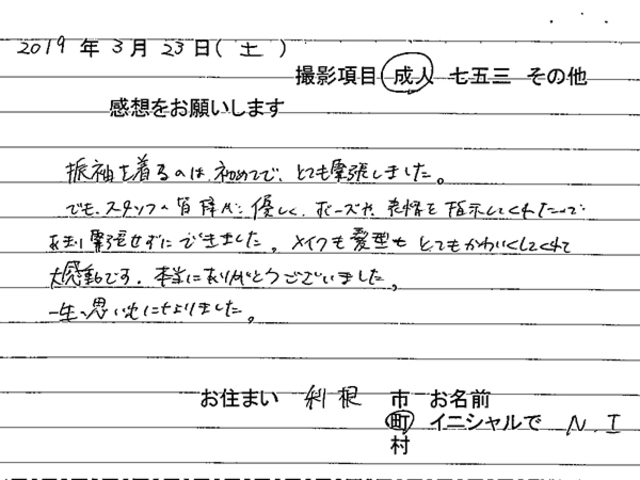 2019年3月23日(土)
撮影項目 成人 七五三 その他
感想をお願いします
振袖を着るのは、初めてで、とても緊張しました。
でも、スタッフの皆様が優しく、ポーズや、表情を指示してくれたので
あまり緊張せずにできました。メイクも髪型もとてもかわいくしてくれて
大感動です。本当にありがとうございました。
一生の思い出になりました。
お住まい 利根 市 お名前
町 イニシャルで N.I
村